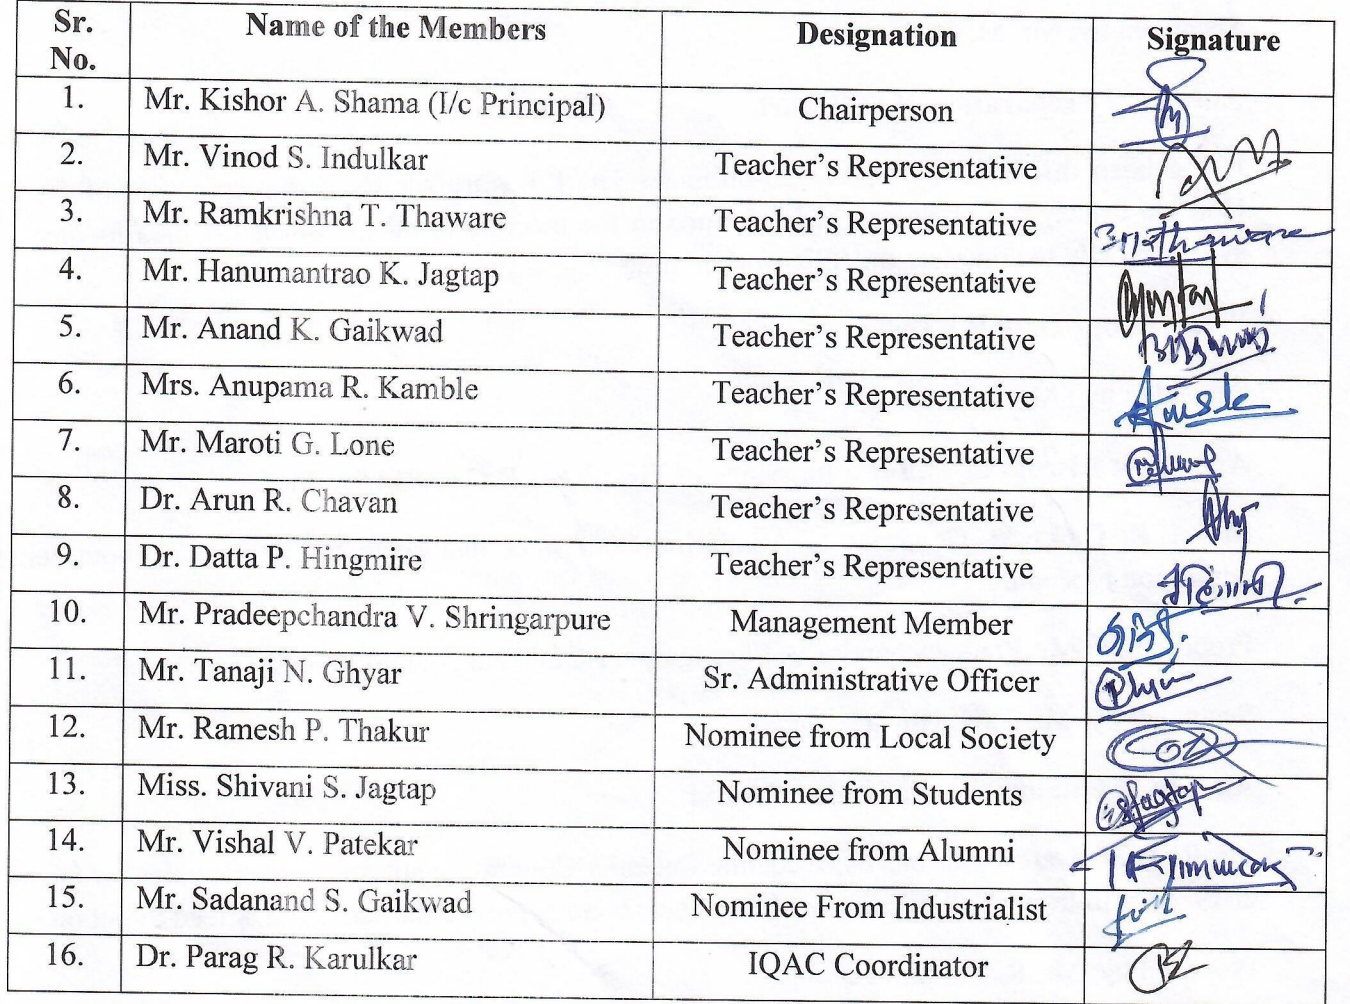 Sr. No. Name of the Members Designation Signature
1. Mr. Kishor A. Shama (I/c Principal) Chairperson
2. Mr. Vinod S. Indulkar Teacher's Representative
3. Mr. Ramkrishna T. Thaware Teacher's Representative
4. Mr. Hanumantrao K. Jagtap Teacher's Representative
5. Mr. Anand K. Gaikwad Teacher's Representative
6. Mrs. Anupama R. Kamble Teacher's Representative
7. Mr. Maroti G. Lone Teacher's Representative
8. Dr. Arun R. Chavan Teacher's Representative
9. Dr. Datta P. Hingmire Teacher's Representative
10. Mr. Pradeepchandra V. Shringarpure Management Member
11. Mr. Tanaji N. Ghyar Sr. Administrative Officer
12. Mr. Ramesh P. Thakur Nominee from Local Society
13. Miss. Shivani S. Jagtap Nominee from Students
14. Mr. Vishal V. Patekar Nominee from Alumni
15. Mr. Sadanand S. Gaikwad Nominee From Industrialist
16. Dr. Parag R. Karulkar IQAC Coordinator